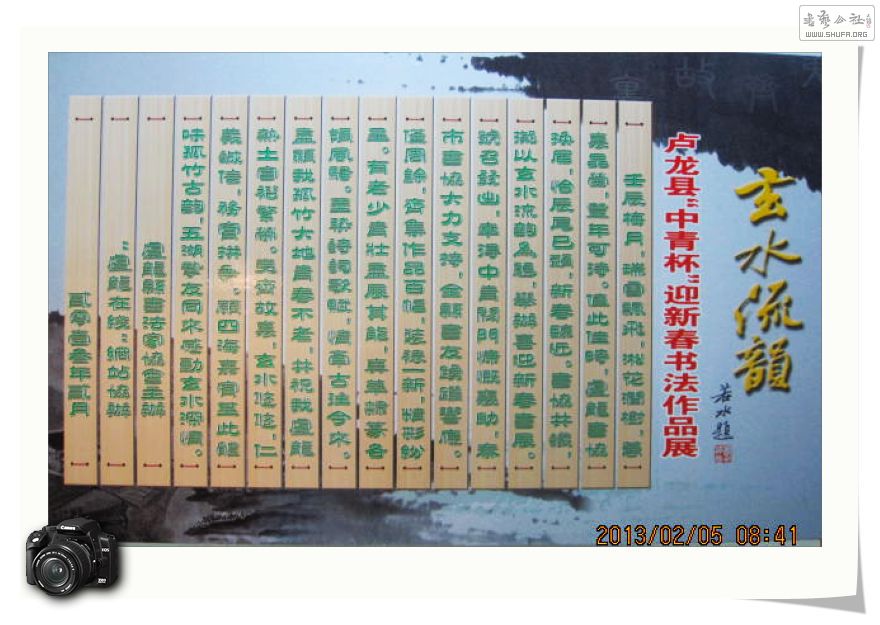 書藝公社
WWW.SHUFA.ORG
玄水流韻
若水題
卢龙县“中青杯”迎新春书法作品展
壬辰梅月，瑞雪飄飛，淞花潤樹，
豐年可待。值此佳時，盧龍書協
換屆，恰辰尾巳頭，新春臨近。書協共識，
擬以玄水流韻為題，舉辦喜迎新春書展。
號召發出，幸得中青閥門慷慨援助，秦
市書協大力支持，全縣書友踴躍響應。
僅周餘，齊集作品百幅，裝裱一新，精彩紛
呈。有老少青壯盡展其能，真草隸篆各
領風騷。並染詩詞歌賦，情寄古往今來。
盖頌我孤竹大地青春不老，共祝我盧龍
熱土富裕繁榮。夷齊故事，玄水悠悠，仁
義誠信，務實洪無。願四海嘉賓至此鑑
味孤竹古韻，五湖摯友同來感動玄水深情。
盧龍縣書法家協會主辦
“盧龍在线”網站協辦
貳零壹叁年貳月
2013/02/05 08:41
Canon
EOS